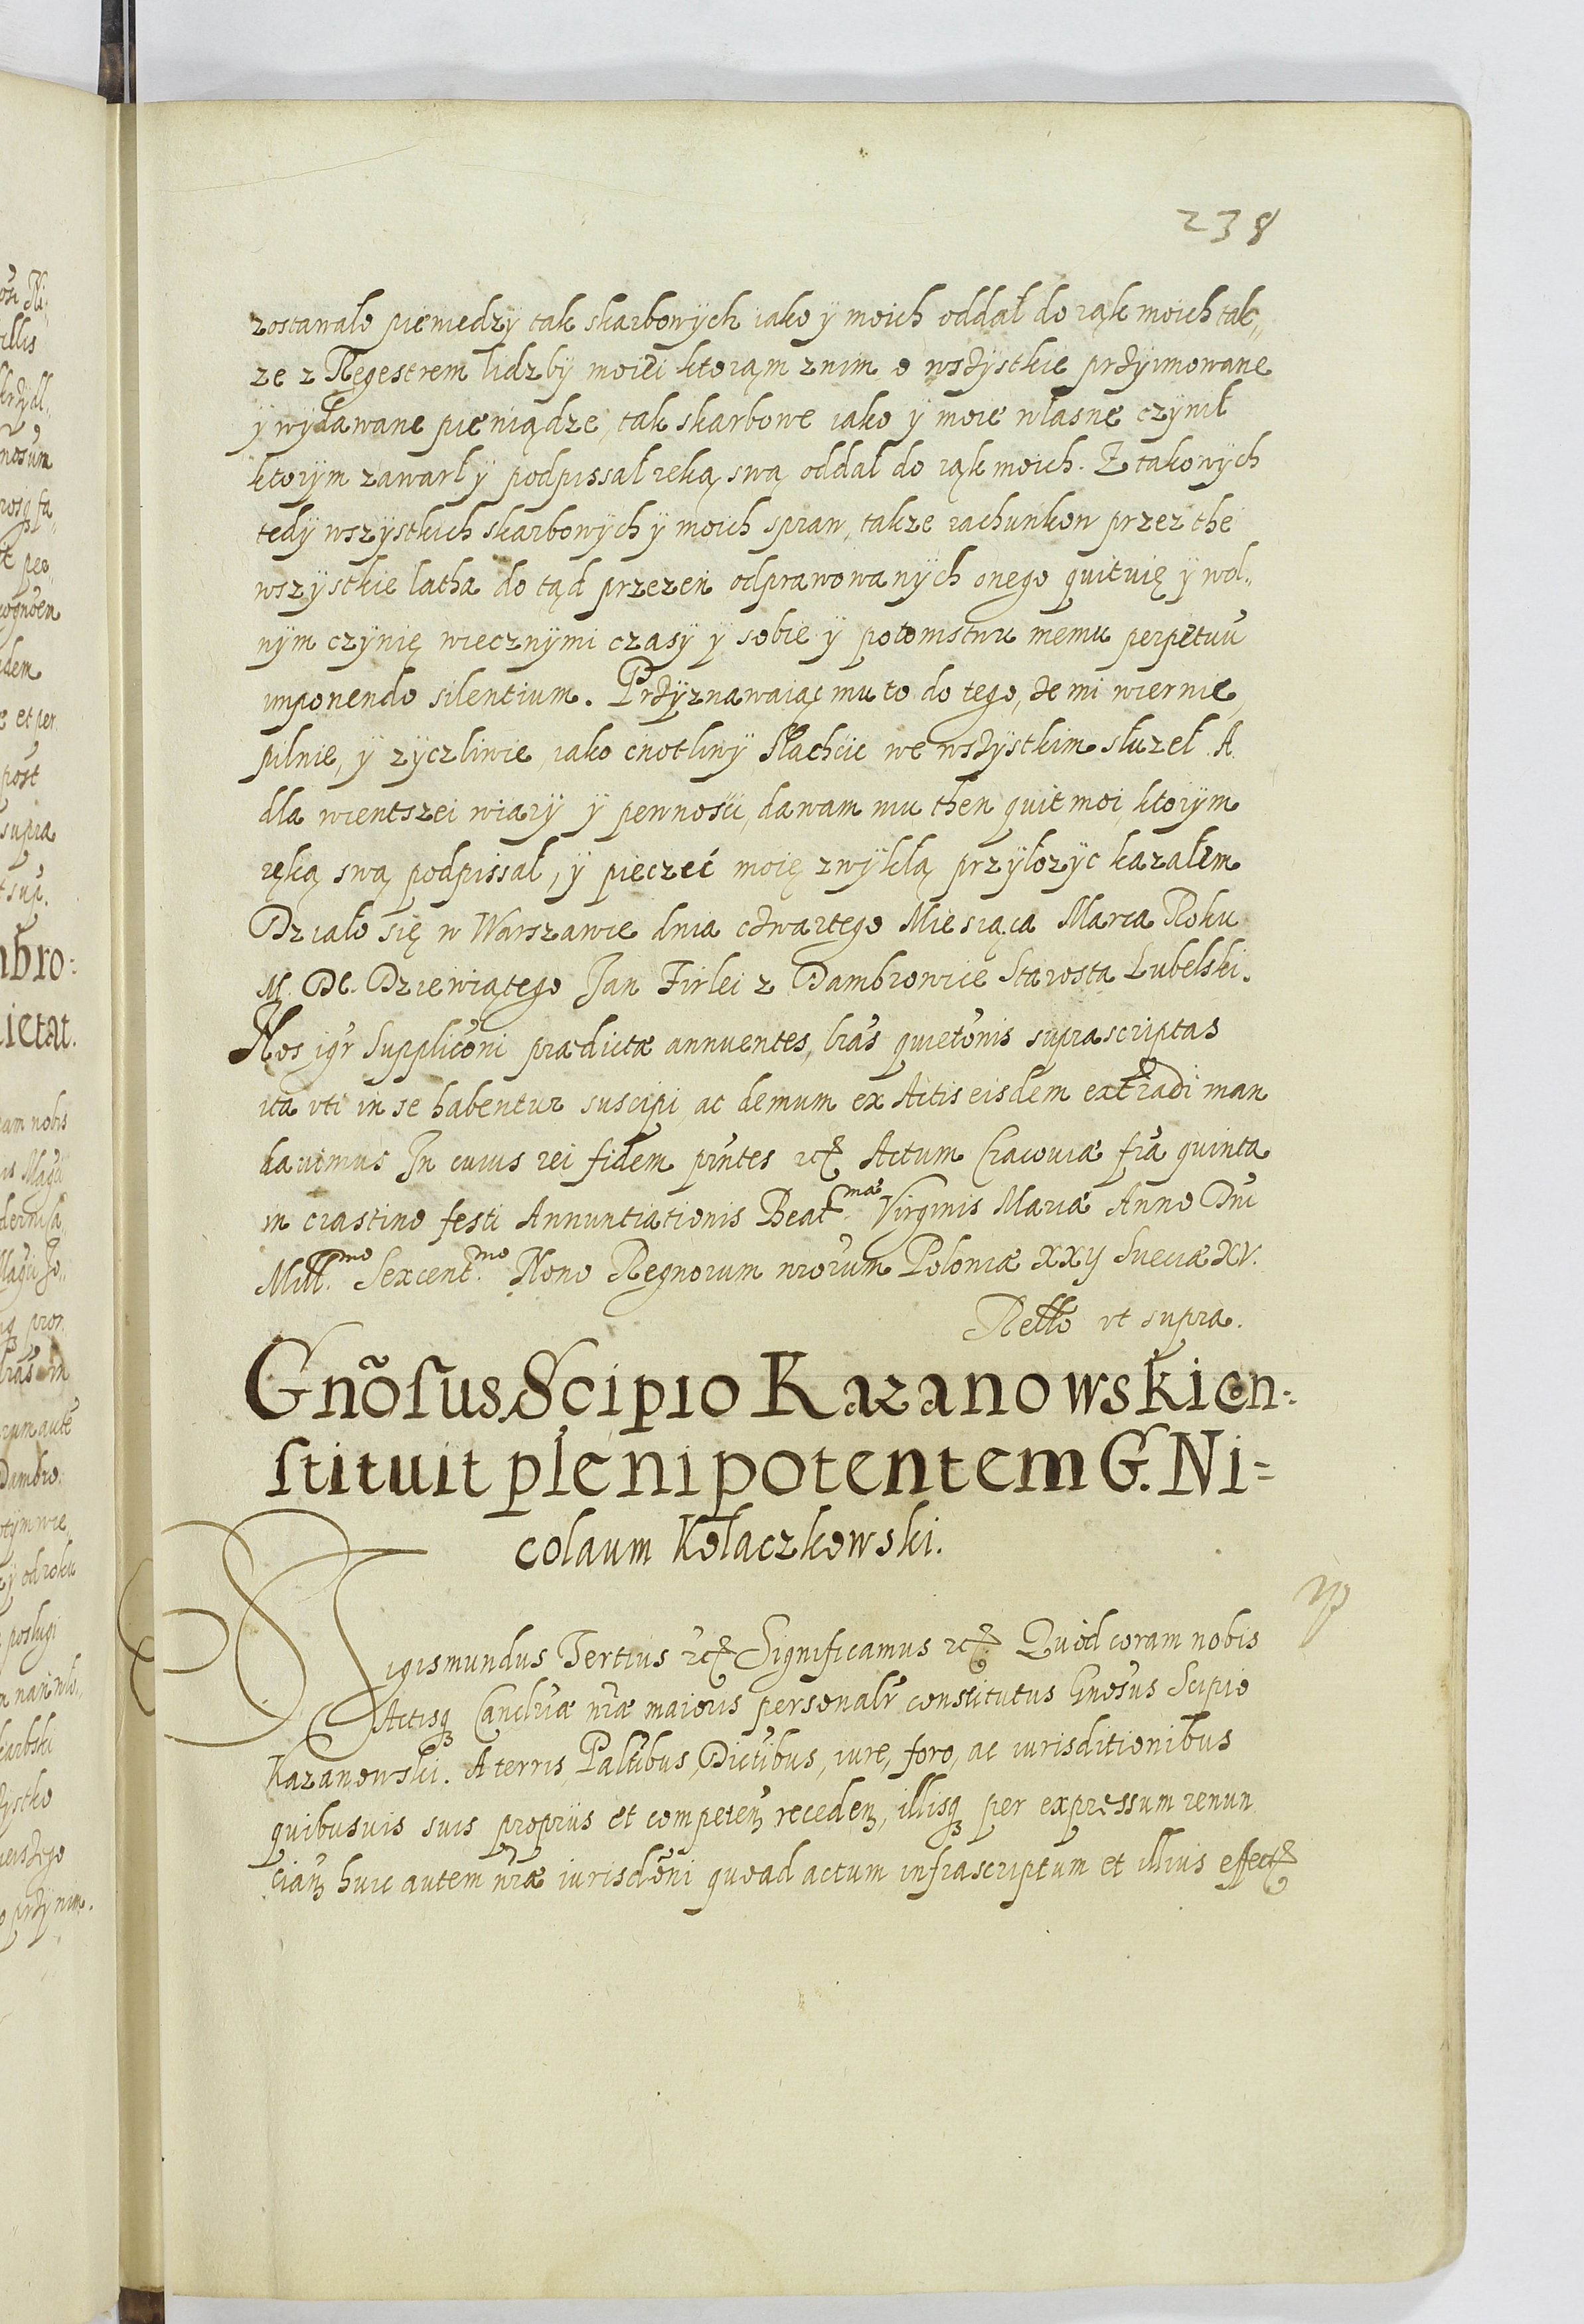 238
zostawało pieniedzÿ tak skarbowÿch iako ÿ moich oddał do rąk moich tak„
ze z Regestrem lidzbÿ moiei ktorąm znim o wsżÿstkie prżÿimowane
ÿ wÿdawane pieniądze, tak skarbowe iako ÿ moie własne czÿnił
ktorÿm zawarł ÿ podpissał reką swą oddał do rąk moich. Z takowÿch
tedÿ wszÿstkich skarbowÿch ÿ moich spraw, takze rachunkow przez the
wszÿstkie latha do tąd przezeń odprawowanÿch onego quituię ÿ wol„
nÿm czÿnię wiecznÿmi czasÿ ÿ sobie ÿ potomstwu memu perpetuũ
imponendo silentium. Prżÿznawaiąc mu to do tego, że mi wiernie,
pilnie, ÿ zÿczliwie, iako cnotliwÿ slachcic we wsżÿstkim słuzeł. A
dla wientszei wiarÿ ÿ pewnosci, dawam mu then quit moi, ktorÿm
ręką swą podpissał, ÿ pieczeć moię zwÿkłą przÿłozÿc kazałem
Działo się w Warszawie dnia cżwartego Miesiąca Marca Roku
M. DC. Dziewiątego Jan Firlei z Dambrowice Starosta Lubelski.
Nos igr̃ Supplicõni prædictæ annuentes, lr̃as quietõnis suprascriptas
ita vti in se habentur suscipi, ac demum ex Actis eisdem extradi man
dauimus In cuius rei fidem pñtes etc̃ Actum Cracouiæ fr̃ia quinta
in crastino festi Annuntiationis Beat.mæ Virginis Mariæ Anno Dñi
Mill.mo Sexcent.mo Nono Regnorum nrõrum Poloniæ XXÿ Sueciæ XV.
Rel̃to vt supra.
Gnõſus Scipio Kazanowski con-
ſtituit plenipotentem G. Ni=
colaum Kołaczkowski.
Sigismundus Tertius etc̃ Significamus etc̃. Quod coram nobis
Actisqꝫ Cancl̃riæ nr̃æ maioris personalr̃ constitutus Gnõsus Scipio
Kazanowski. A terris, Palt̃ibus, Dict̃ibus, iure, foro, ac iurisditionibus
quibusuis suis proprijs et competenꝫ recedenꝫ, illisqꝫ per expressum renun
cianꝫ huic autem nr̃æ iurisdc̃ni quoad actum infrascriptum et illius effect̃